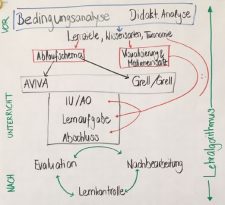 VOR
Bedingungsanalyse Didakt. Analyse
Lernziele, Wissensarten, Taxonomie
Ablaufschema
Visualisierung &
AVIVA
Grell/Grell
UNTERRICHT
IU/AO
Lernaufgabe
Abschluss
NACH
Evaluation
Nachbearbeitung
Lernkontrolle